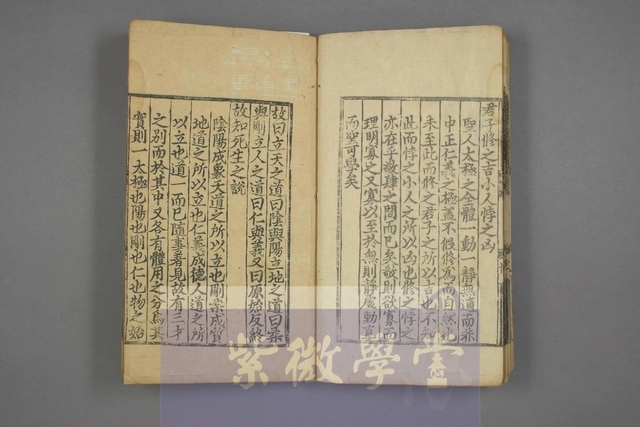 君子修之吉小人悖之凶
聖人太極之全體一動一靜無適而非
中正仁義之極蓋不假修爲而自然也
未至此而修之君子之所以吉也不知
此而悖之小人之所以凶也修之悖之
亦在乎敬肆之間而已矣敬則欲寡而
理明寡之又寡以至於無則靜虛動直
而聖可學矣
故曰立天之道曰陰與陽立地之道曰柔
與剛立人之道曰仁與義又曰原始反終
故知死生之說
陰陽成象天道之所以立也剛柔成質
地道之所以立也仁義成德人道之所
以立也道一而已隨事著見故有三才
之別而於其中又各有體用之分焉其
實則一太極也陽也剛也仁也物之始
紫微學堂